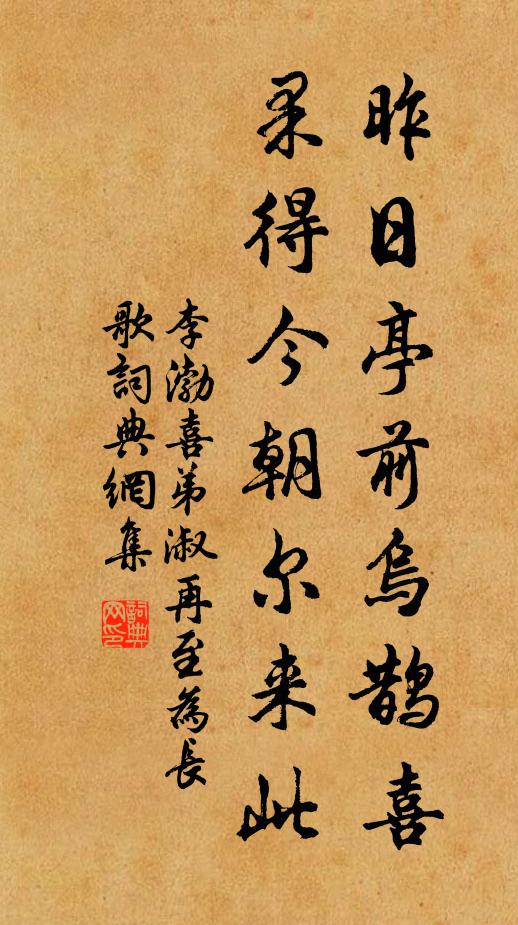 昨日亭前烏鵲喜
果得今朝尔来此
李渤喜弟淑再至為長
歌詞典網集
詞典网印